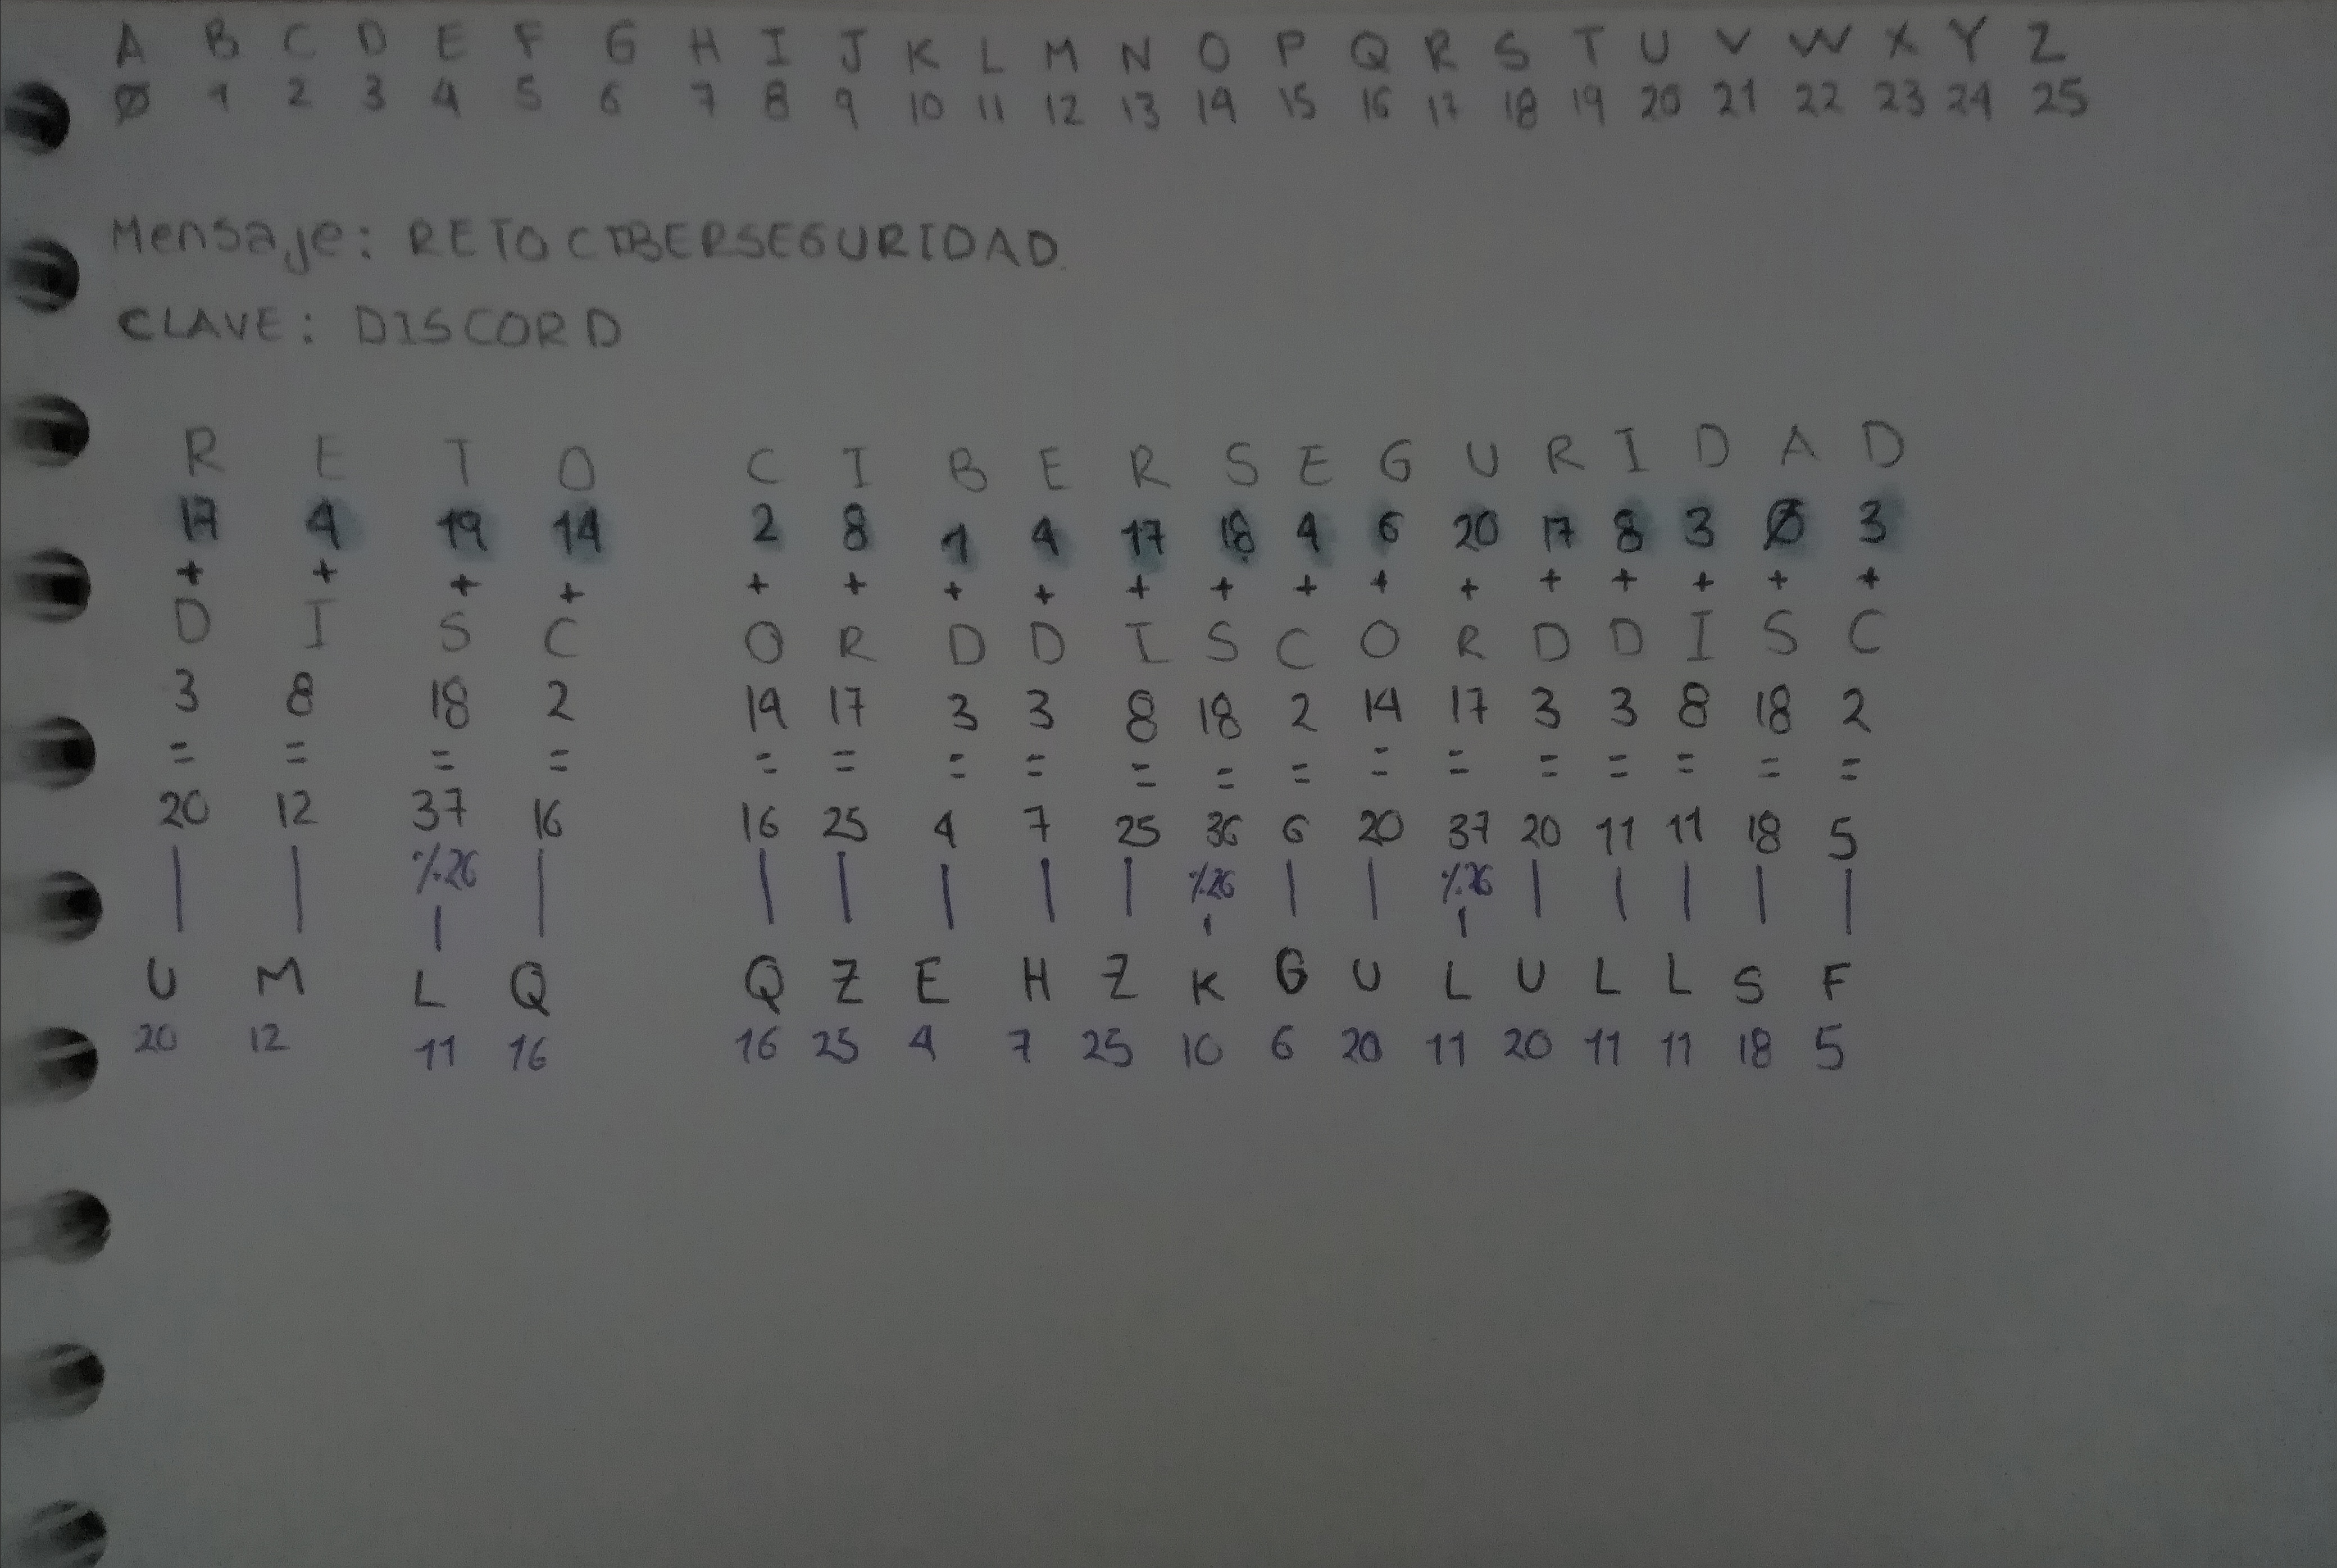 A B C D E F G H I J K L M N O P Q R S T U V W X Y Z
Ø 1 2 3 4 5 6 7 8 9 10 11 12 13 14 15 16 17 18 19 20 21 22 23 24 25
Mensaje: RETO CIBERSEGURIDAD
CLAVE: DISCORD
R E T O C I B E R S E G U R I D A D
17 4 19 14 2 8 1 4 17 18 4 6 20 17 8 3 Ø 3
+ + + + + + + + + + + + + + + + + +
D I S C O R D D I S C O R D D I S C
3 8 18 2 14 17 3 3 8 18 2 14 17 3 3 8 18 2
= = = = = = = = = = = = = = = = = =
20 12 37 16 16 25 4 7 25 36 6 20 37 20 11 11 18 5
%26 %26 %26
U M L Q Q Z E H Z K G U L U L L S F
20 12 11 16 16 25 4 7 25 10 6 20 11 20 11 11 18 5